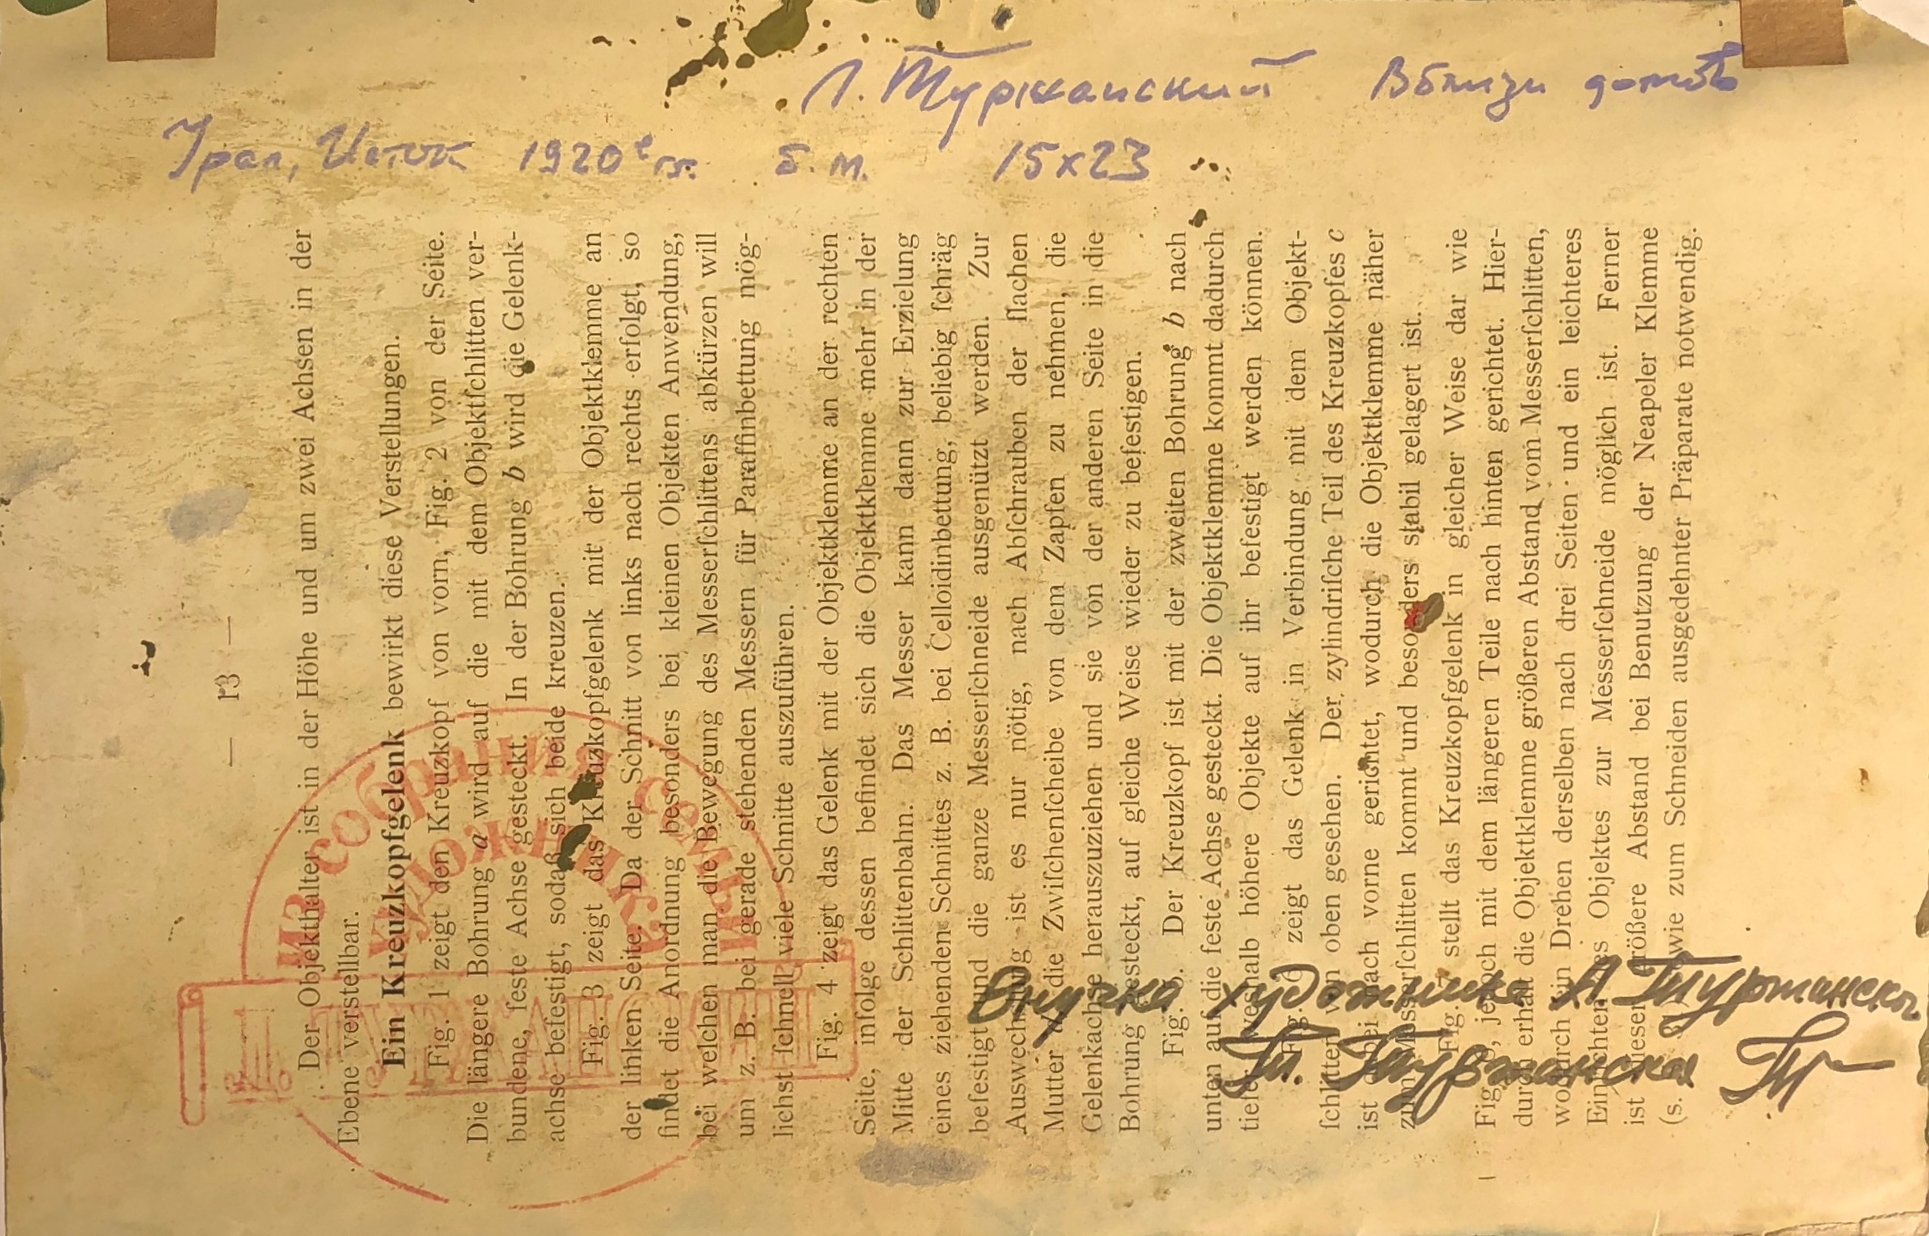 Л. Туржанский Вблизи домов
Урал, Исток 1920е гг. б.м. 15х23
— 13 —
Der Objekthalter ist in der Höhe und um zwei Achsen in der
Ebene verstellbar.
Ein Kreuzkopfgelenk bewirkt diese Verstellungen.
Fig. 1 zeigt den Kreuzkopf von vorn, Fig. 2 von der Seite.
Die längere Bohrung a wird auf die mit dem Objektſchlitten ver-
bundene, feste Achse gesteckt. In der Bohrung b wird die Gelenk-
achse befestigt, sodaß sich beide kreuzen.
Fig. 3 zeigt das Kreuzkopfgelenk mit der Objektklemme an
der linken Seite. Da der Schnitt von links nach rechts erfolgt, so
findet die Anordnung besonders bei kleinen Objekten Anwendung,
bei welchen man die Bewegung des Messerſchlittens abkürzen will
um z. B. bei gerade stehenden Messern für Paraffinbettung mög-
lichst ſchnell viele Schnitte auszuführen.
Fig. 4 zeigt das Gelenk mit der Objektklemme an der rechten
Seite, infolge dessen befindet sich die Objektklemme mehr in der
Mitte der Schlittenbahn. Das Messer kann dann zur Erzielung
eines ziehenden Schnittes z. B. bei Celloidinbettung, beliebig ſchräg
befestigt und die ganze Messerſchneide ausgenützt werden. Zur
Auswechslung ist es nur nötig, nach Abſchrauben der flachen
Mutter die Zwiſchenſcheibe von dem Zapfen zu nehmen, die
Gelenkachse herauszuziehen und sie von der anderen Seite in die
Bohrung gesteckt, auf gleiche Weise wieder zu befestigen.
Fig. 5. Der Kreuzkopf ist mit der zweiten Bohrung b nach
unten auf die feste Achse gesteckt. Die Objektklemme kommt dadurch
tiefer, weshalb höhere Objekte auf ihr befestigt werden können.
zeigt das Gelenk in Verbindung mit dem Objekt-
ſchlitten von oben gesehen. Der zylindriſche Teil des Kreuzkopfes c
ist dabei nach vorne gerichtet, wodurch die Objektklemme näher
zum Messerſchlitten kommt und besonders stabil gelagert ist.
Fig. 7 stellt das Kreuzkopfgelenk in gleicher Weise dar wie
Fig. jedoch mit dem längeren Teile nach hinten gerichtet. Hier-
durch erhält die Objektklemme größeren Abstand vom Messerſchlitten,
wodurch ein Drehen derselben nach drei Seiten und ein leichteres
Einrichten des Objektes zur Messerſchneide möglich ist. Ferner
ist dieser größere Abstand bei Benutzung der Neapeler Klemme
(s. wie zum Schneiden ausgedehnter Präparate notwendig.
Из собрания семьи
художника
Л. ТУРЖАНСКИЙ
Внучка художника Л. Туржанского
Туржанская